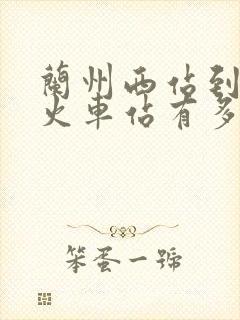 蘭州西佔到
火車佔有多
笨蛋一號